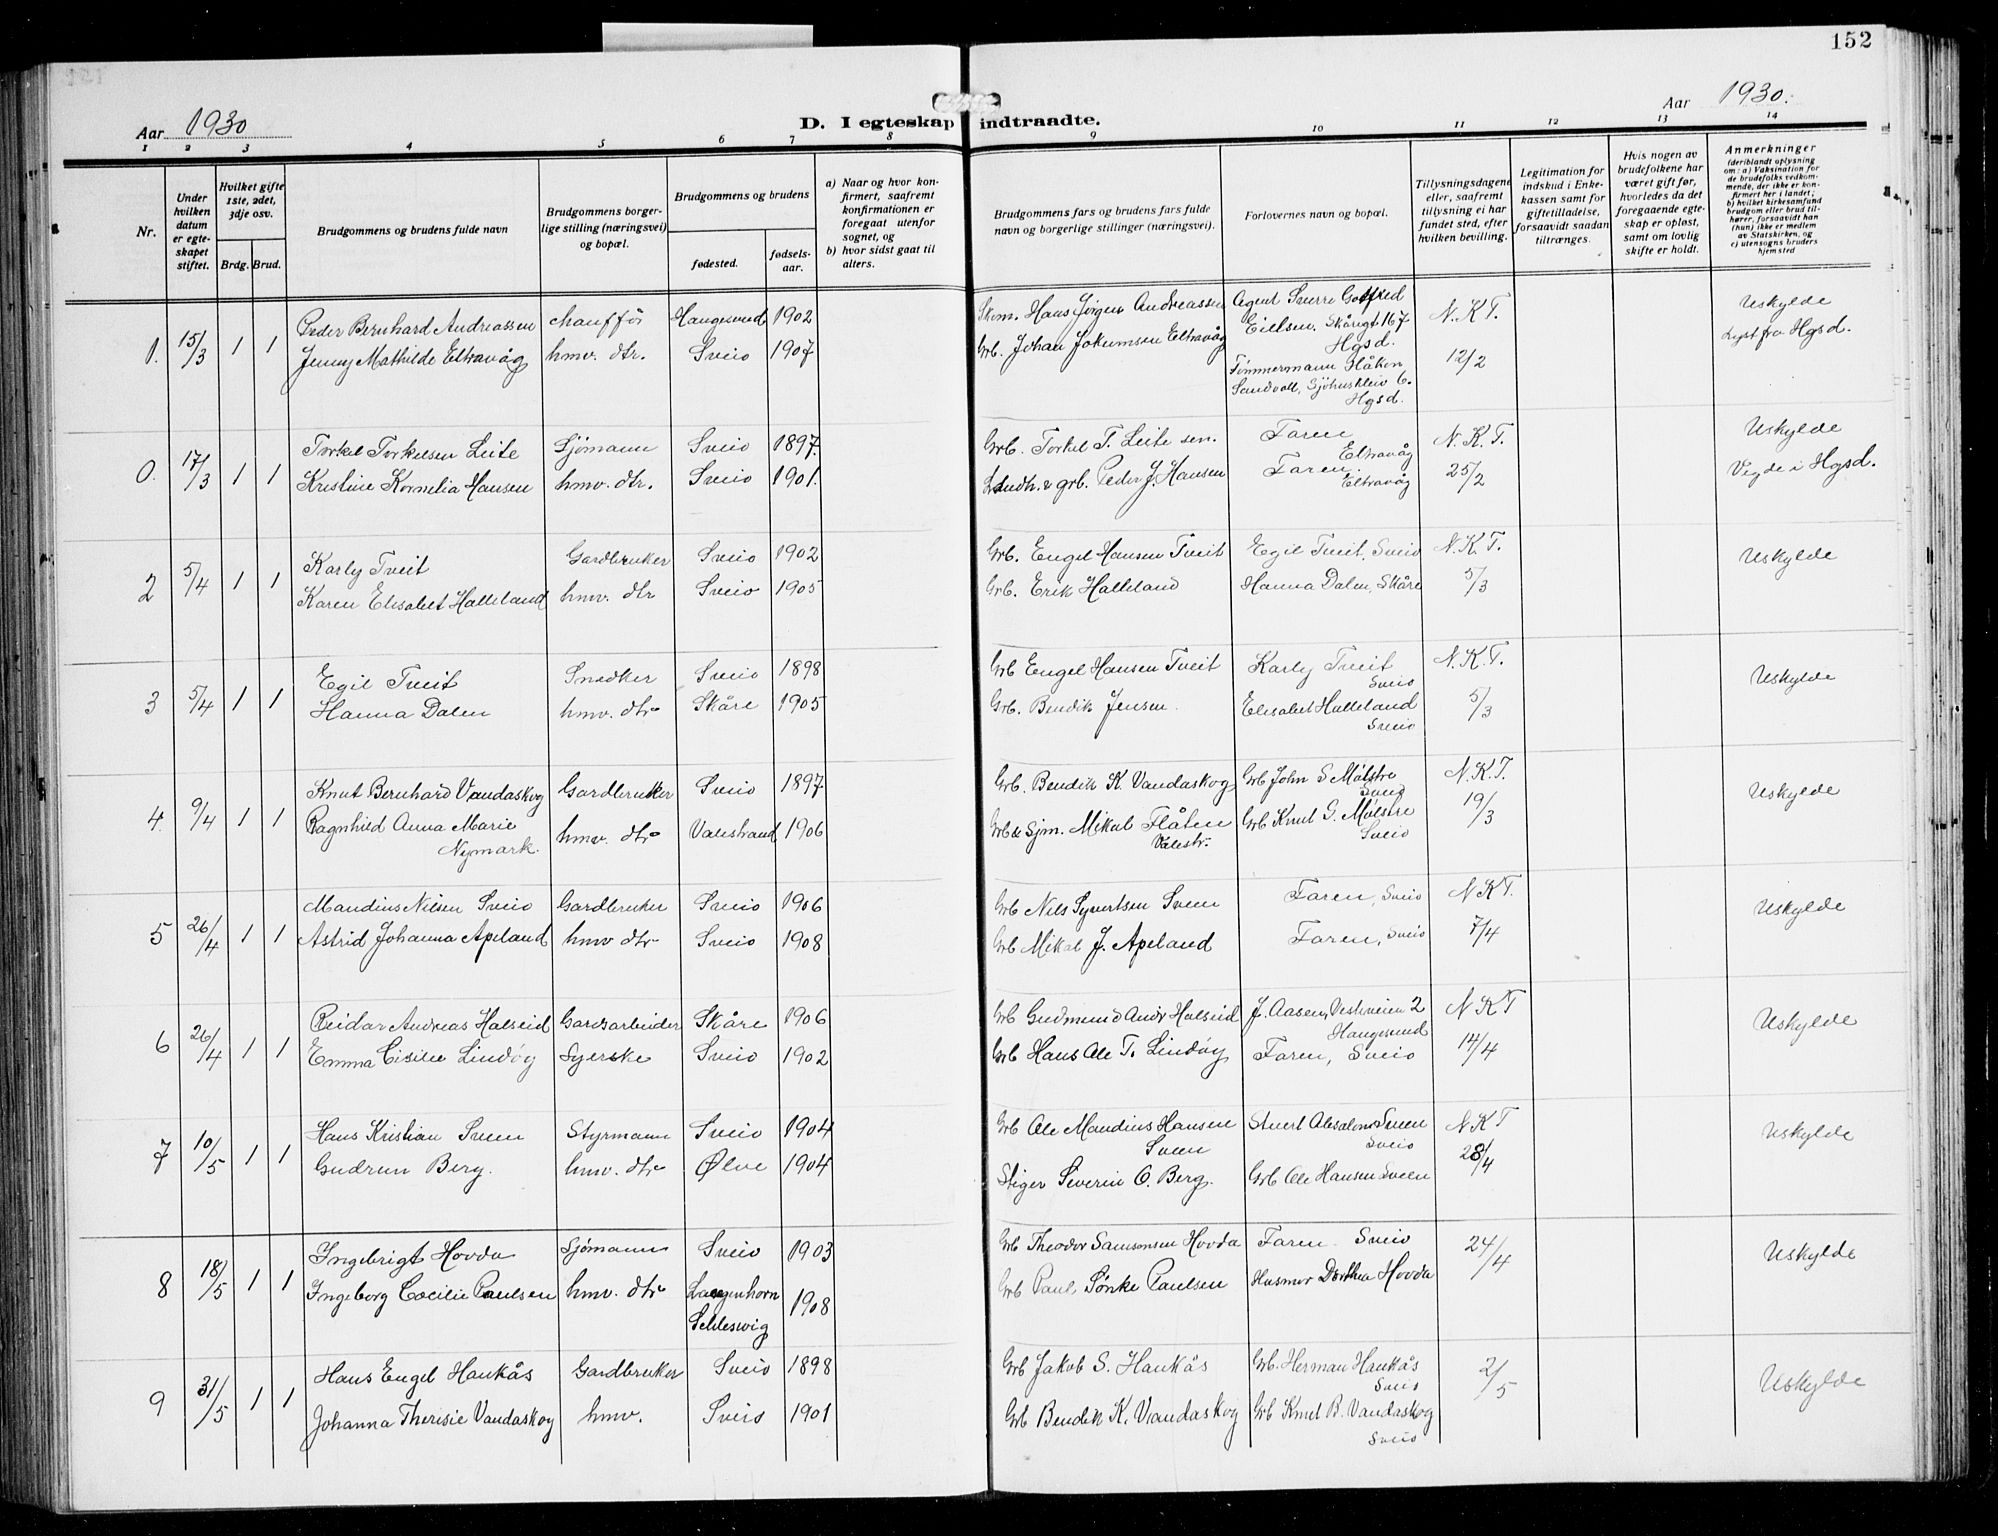 152
Aar 1930
Aar 1930.
D. I egteskap indtraadte.
1 2 3 4 5 6 7 8 9 10 11 12 13 14
Nr.
Under hvilken datum er egteskapet stiftet.
Hvilket gifte 1ste, 2det, 3dje osv.
Brdg. Brud.
Brudgommens og brudens fulde navn
Brudgommens borgerlige stilling (næringsvei) og bopæl.
Brudgommens og brudens
fødested.
fødselsaar.
a) Naar og hvor konfirmert, saafremt konfirmationen er foregaat utenfor sognet, og
b) hvor sidst gaat til alters.
Brudgommens fars og brudens fars fulde navn og borgerlige stillinger (næringsvei).
Forlovernes navn og bopæl.
Tillysningsdagene eller, saafremt tillysning ei har fundet sted, efter hvilken bevilling.
Legitimation for indskud i Enkekassen samt for giftetilladelse, forsaavidt saadan tiltrænges.
Hvis nogen av brudefolkene har været gift før, hvorledes da det foregaaende egteskap er opløst, samt om lovlig skifte er holdt.
Anmerkninger
(deriblandt oplysning om: a) Vaksination for de brudefolks vedkommende, der ikke er konfirmert her i landet; b) hvilket kirkesamfund brudgom eller brud tilhører, forsaavidt han (hun) ikke er medlem av Statskirken, og c) utensogns bruders hjemsted
1. 15/3 1 1 Peder Bernhard Andreassen chauffør Haugesund 1902 Skom. Hans Jørgen Andreassen Agent Sverre Gotfred Eielsen, Skåregt 167 Hgsd. N.K.T. Uskylde
Jenny Mathilde Eltravåg hmv. dtr. Sveio 1907 Grb. Johan Jokumsen Eltravåg Tømmermann Håkon Sandvoll, Sjøhuskleiv 6. Hgsd. 12/2 Lyst fra Hgsd.
0. 17/3 1 1 Torkel Torkelsen Leite Sjømann Sveio 1897 Grb. Torkel T. Leite sen. Faren Eltravåg N.K.T. Uskylde
Kristine Kornelia Hansen hmv. dtr. Sveio 1901. Landh. & grb. Peder J. Hansen Faren. Eltravåg 25/2 Vigde i Hgsd.
2 5/4 1 1 Karly Tveit Gardbruker Sveio 1902 Grb. Engel Hansen Tveit Egil Tveit, Sveio N.K.T. Uskylde
Karen Elisabet Halleland hmv. dtr Sveio 1905 Grb. Erik Halleland Hanna Dalen, Skåre 5/3
3 5/4 1 1 Egil Tveit Snedker Sveio 1898 Grb Engel Hansen Tveit Karly Tveit Sveio N.K.T. Uskylde
Hanna Dalen hmv. dtr Skåre 1905 Grb. Bendik Jensen. Elisabet Halleland Sveio 5/3
4. 9/4 1 1 Knut Bernhard Vandaskog Gardbruker Sveio 1897 Grb. Bendik K. Vandaskog Grb John S Mølstre Sveio N.K.T. Uskylde
Ragnhild Anna Marie Nymark. hmv. dtr Valestrand 1906 Grb & Sjm. Mikal Flåten Valestr. Grb Knut G. Mølstre Sveio 19/3
5 26/4 1 1 Mandius Nilsen Sveio Gardbruker Sveio 1906 Grb Nils Syvertsen Sveen Faren, Sveio N.K.T. Uskylde
Astrid Johanna Apeland hmv dtr Sveio 1908 Grb Mikal J. Apeland Faren, Sveio 7/4
6 26/4 1 1 Reidar Andreas Halseid Gardsarbeider Skåre 1906 Grb Gudmund Andr Halseid J. Aasen, Vestveien 2 Haugesund N K T Uskylde
Emma Cicilie Lindøy Syerske Sveio 1902 Grb Hans Ole T. Lindøy Faren, Sveio 14/4
7 10/5 1 1 Hans Kristian Sveen Styrmann Sveio 1904 Grb Ole Mandius Hansen Sveen Sivert Absalons Sveen Sveio N K T Uskylde
Gudrun Berg. hmv. dtr Ølve 1904 Stiger Severin O. Berg. Grb Ole Hansen Sveen 28/4
8 18/5 1 1 Ingebrigt Hovda Sjømann Sveio 1903 Grb Theodor Samsonsen Hovda Faren Sveio 24/4 Uskylde
Ingeborg Cæcilie Paulsen hmv. dtr Langenhorn Schleswig 1908 Grb Paul Sønke Paulsen Husmor Dorthea Hovda
9 31/5 1 1 Hans Engel Haukås Gardbruker Sveio 1898 Grb Jakob S. Haukås Grb. Herman Haukås Sveio 2/5 Uskylde
Johanna Theresie Vandaskog hmv. Sveio 1901 Grb Bendik K. Vandaskog Grb Knut B. Vandaskog Sveio